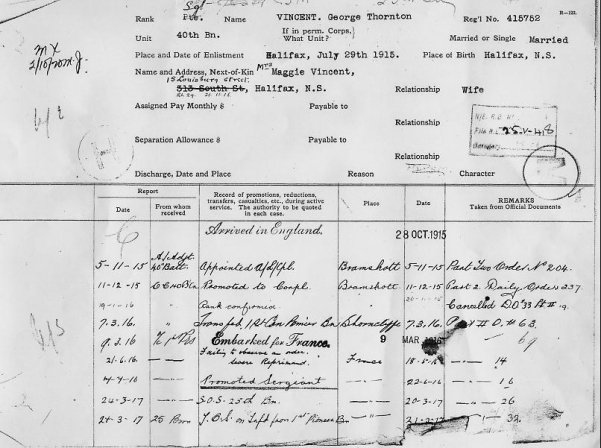 Sgt
Rank Pte. Name VINCENT. George Thornton Reg'l No. 415752 R-122
Unit 40th Bn. If in perm. Corps, What Unit? Married or Single Married
Place and Date of Enlistment Halifax, July 29th 1915. Place of Birth Halifax, N.S.
Name and Address, Next-of-Kin Mrs Maggie Vincent,
15 Louisburg Street.
313 South St, Halifax, N.S. Relationship Wife
Assigned Pay Monthly $ Payable to
Relationship
Separation Allowance $ Payable to
Relationship
Discharge, Date and Place Reason Character
Report Record of promotions, reductions, transfers, casualties, etc., during active service. The authority to be quoted in each case. Place Date REMARKS Taken from Official Documents
Date From whom received
Arrived in England. 28 OCT. 1915
5-11-15 40 Batt. Appointed A/L/Cpl. Bramshott 5-11-15 Part Two Order No 204.
11-12-15 Promoted to Corpl. Bramshott 11-12-15 Part 2. Daily Order 237
19-1-16 Rank confirmed Cancelled
7.3.16. " Transfd. 1st Can Pioneer Bn Shorncliffe 7.3.16. Part II O. # 63.
9.3.16 Embarked for France. 9 MAR 1916
21.6.16 — Failing to observe an order. Severe Reprimand. France 18-5-16 — 14
— Promoted Sergeant — " — 22-6-16 — 16
24-3-17 — " — S.O.S. 25th Bn. — " — 20-3-17 — " — 26
24-3-17 25 Bn T.O.S. on Tsfd from 1st Pioneer Bn — " — 21-3-17 — " — 32.